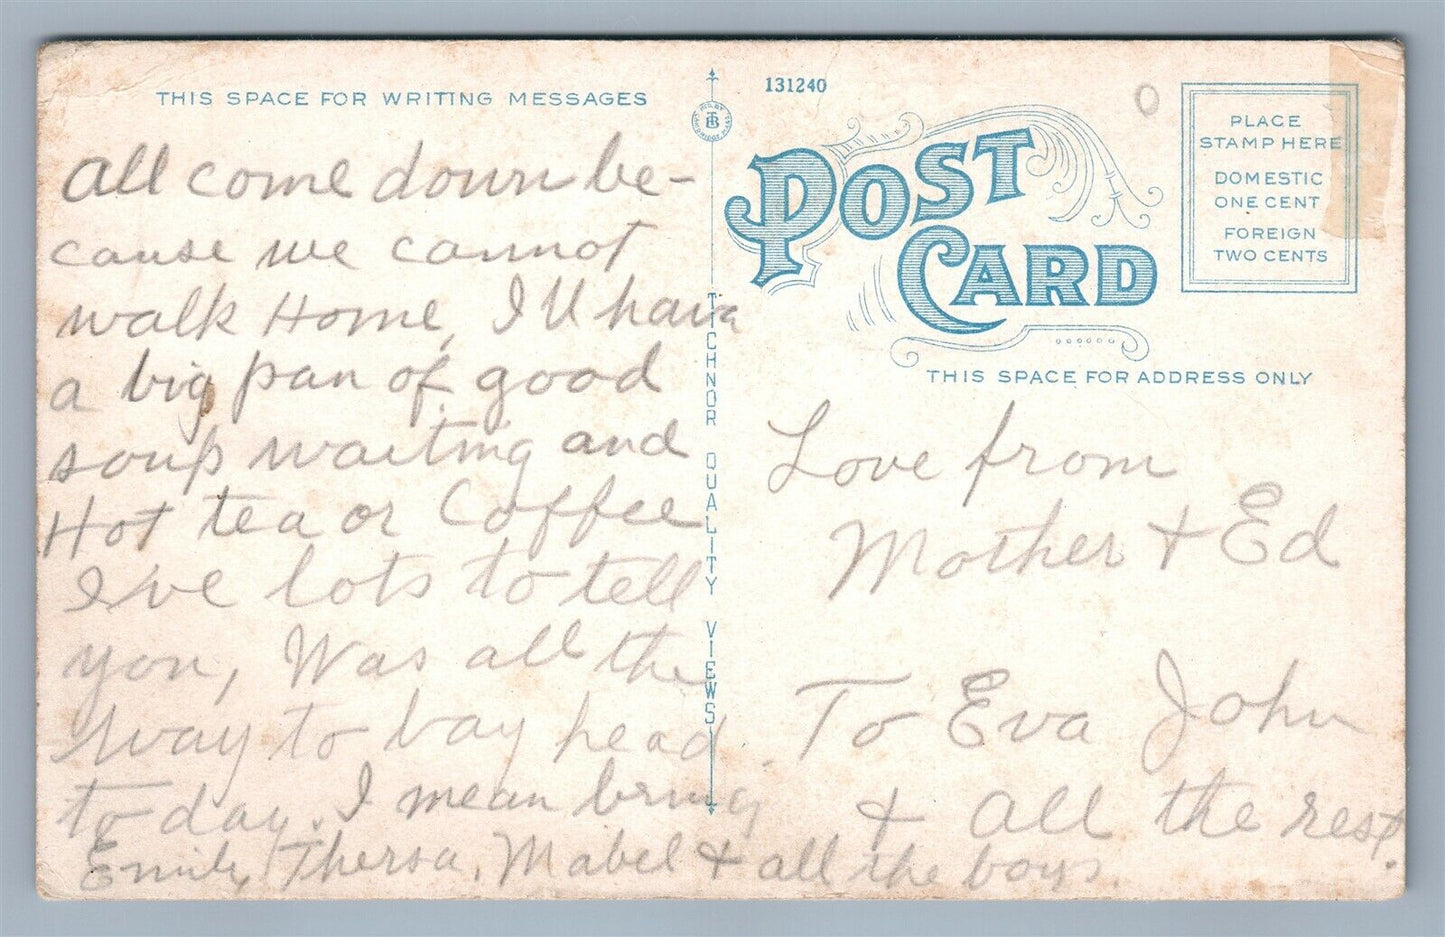 THIS SPACE FOR WRITING MESSAGES
all come down be-
cause we cannot
walk Home, I'll have
a big pan of good
soup waiting and
Hot tea or Coffee
I've lots to tell
you, Was all the
way to bay head
to day. I mean bring
Emily, Thersa, Mabel + all the boys.
TICHNOR QUALITY VIEWS
131240
POST
CARD
PLACE
STAMP HERE
DOMESTIC
ONE CENT
FOREIGN
TWO CENTS
THIS SPACE FOR ADDRESS ONLY
Love from
Mother + Ed
To Eva John
+ all the rest.